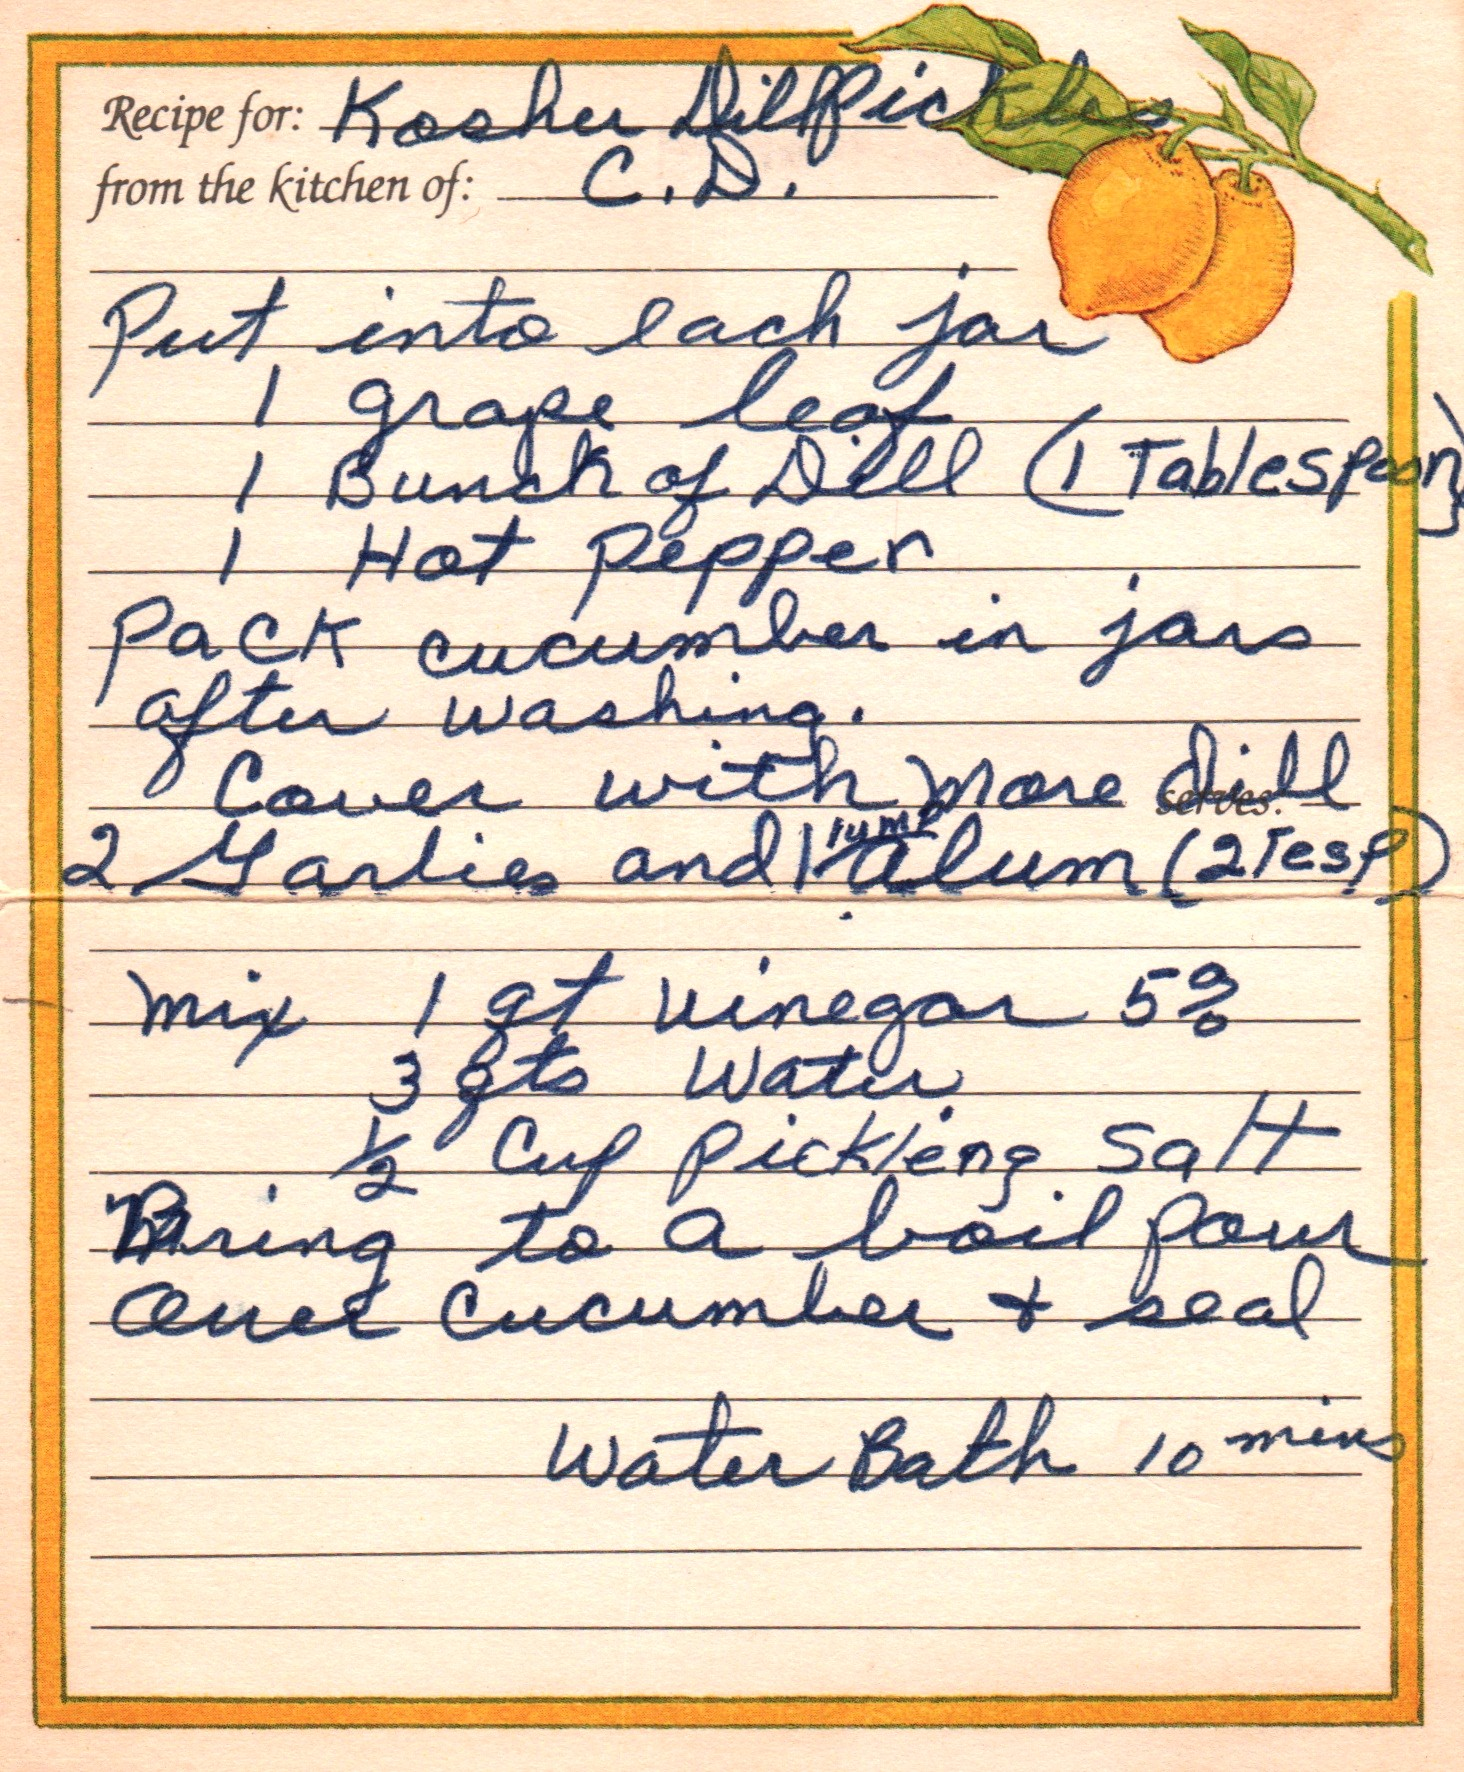 Recipe for: Kosher Dill Pickles
from the kitchen of: C.D.
Put into each jar
1 grape leaf
1 Bunch of Dill (1 Tablespoon)
1 Hot Pepper
Pack cucumber in jars
after washing.
Cover with more dill
serves:
2 Garlics and 1 lump alum (2 Tesp)
Mix 1 qt vinegar 5%
3 qts water
1/2 Cup Pickleing Salt
Bring to a boil Pour
Over Cucumber + seal
Water Bath 10 mins